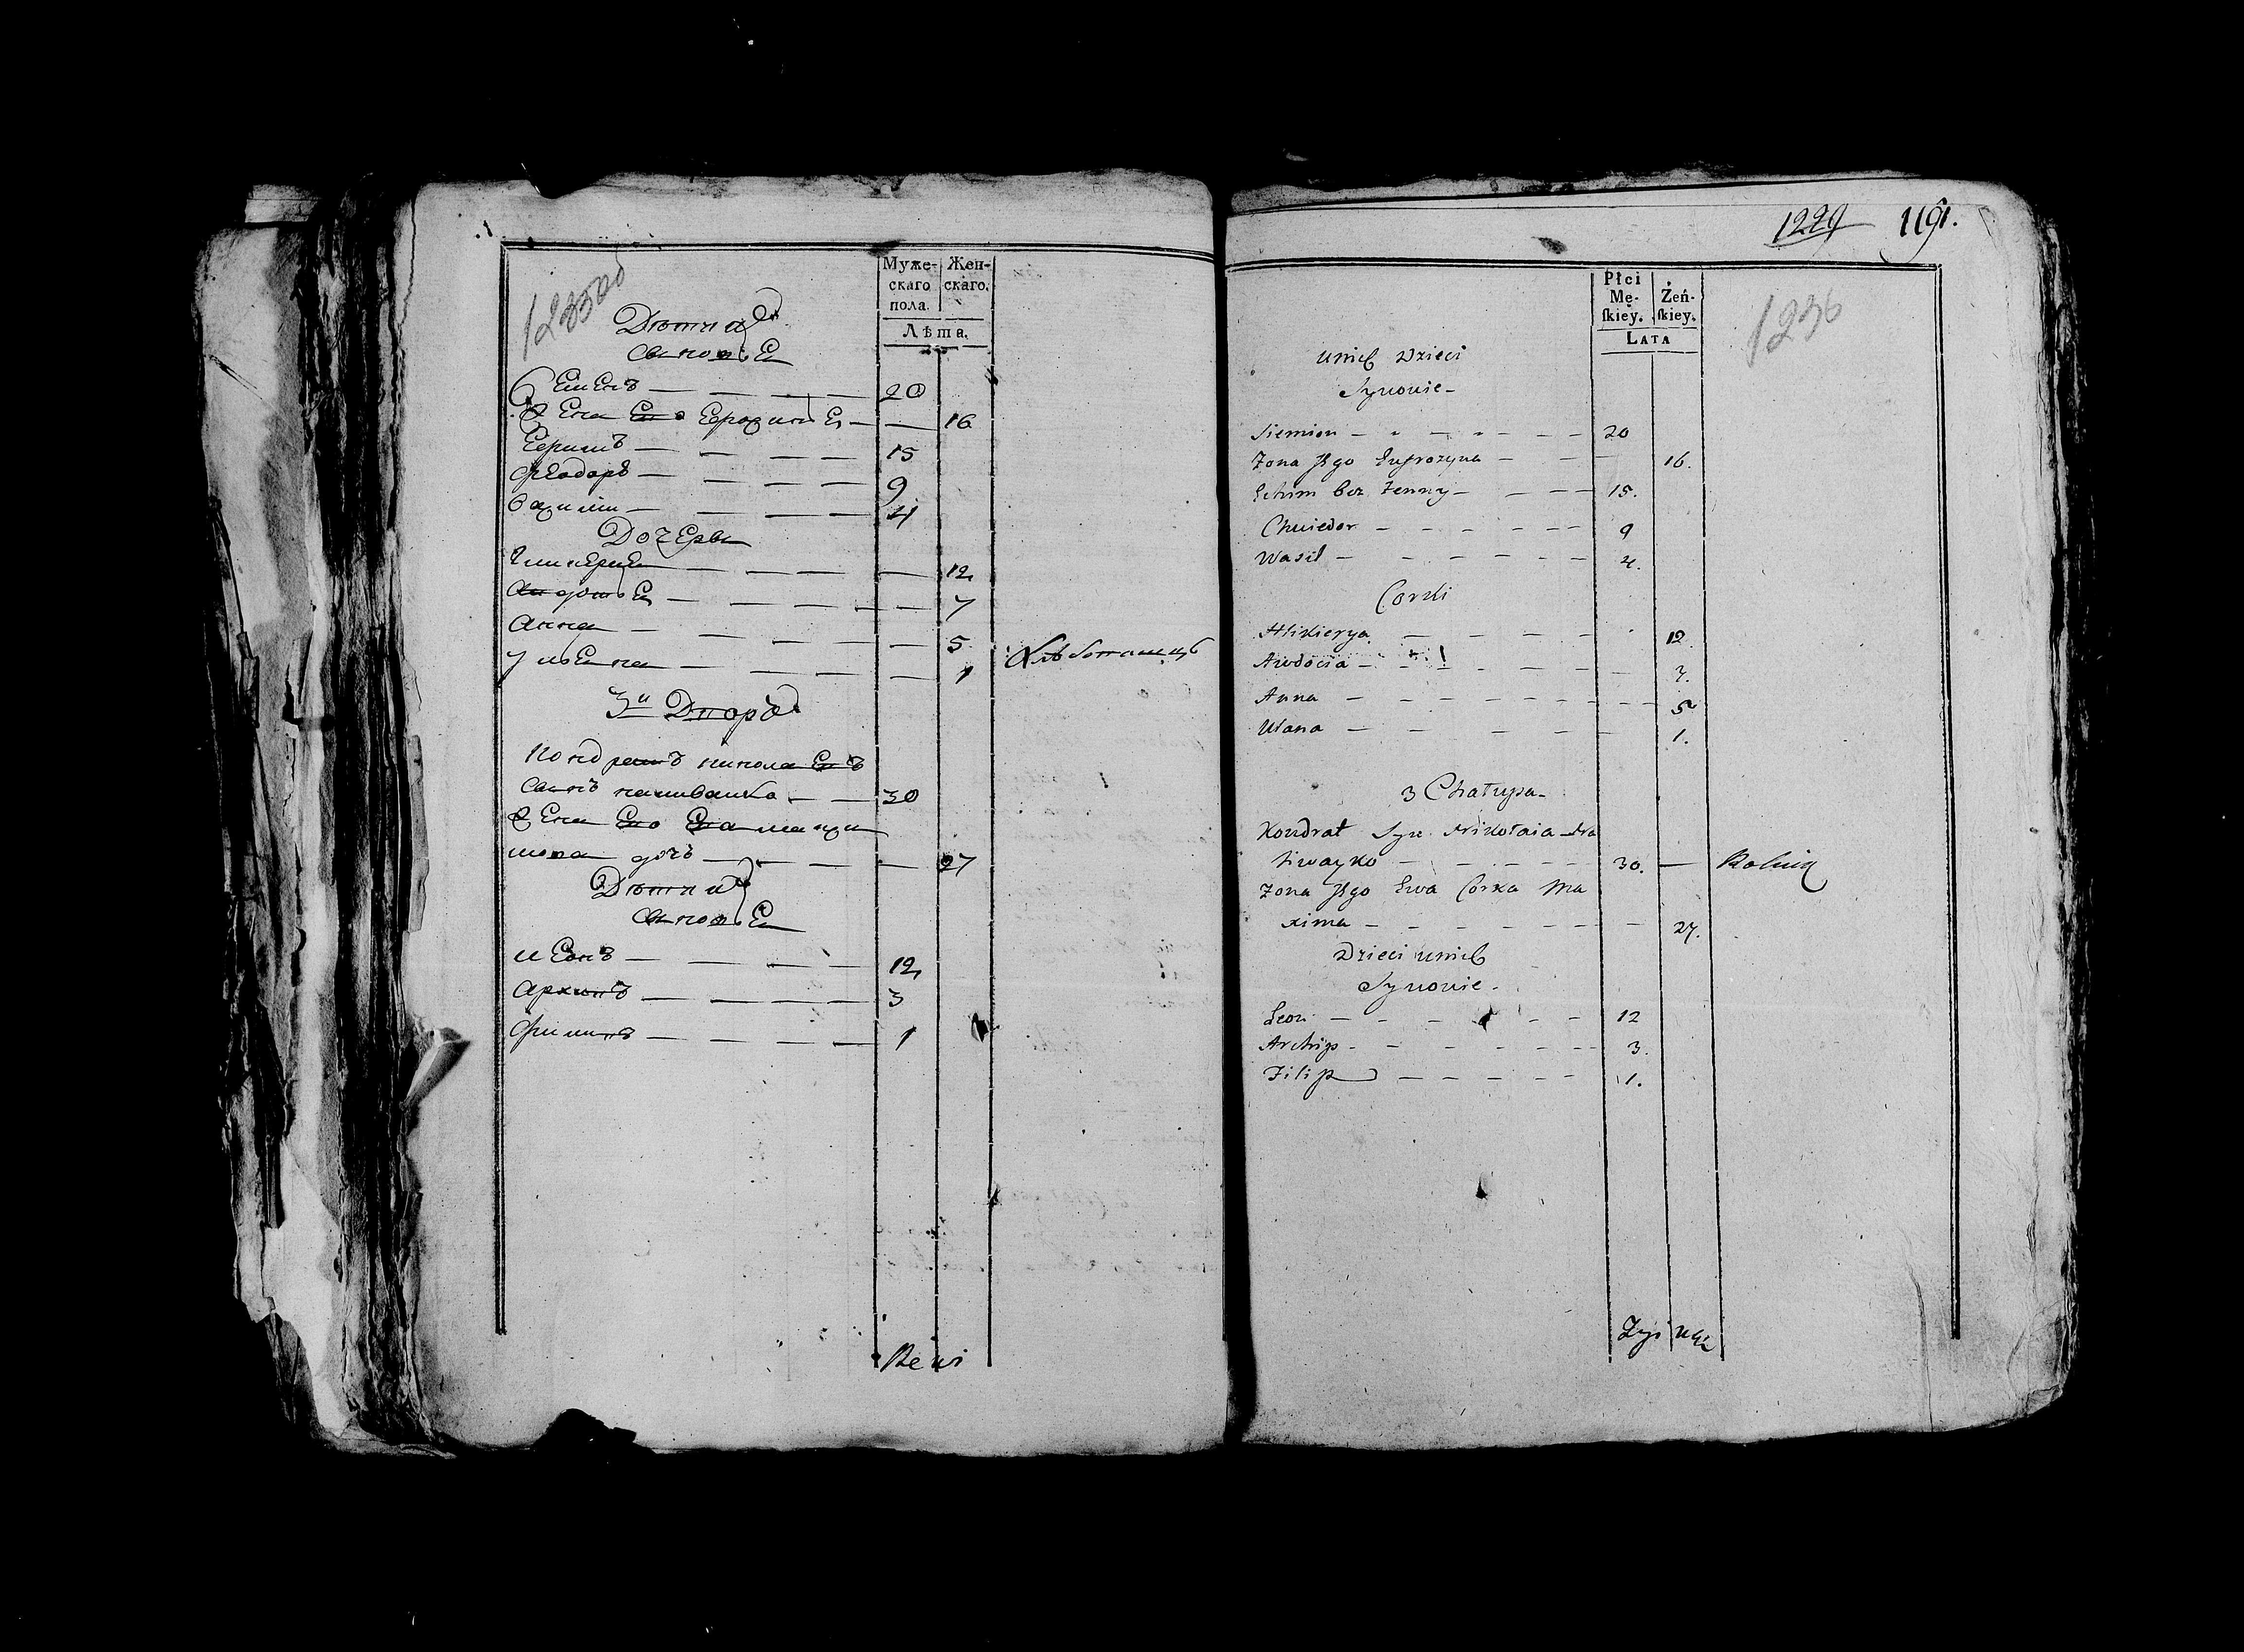 1235об
Муже-
скаго
пола.
Жен-
скаго.
Лѣта.
Дѣти ихъ
Сыновья
Семенъ 20
Жена Его Ефросинья 16
Ефимъ 15
Феодоръ 9
Василий 4
Дочери
Гликерия 12
Авдотья 7
Анна 5
Ульяна 1 Хлѣбопашецъ
3й Дворъ
Кондратъ Николаевъ
Сынъ Наливайко 30
Жена Его Ева Макси
мова дочь 27
Дѣти ихъ
Сыновья
Леонъ 12
Архипъ 3
Филипъ 1
Rewi
1229 1191.
1236
Płci
Mę-
ſkiey.
Żeń-
ſkiey.
LATA
u nich Dzieci
Synowie
Siemion 20
Zona Jego Eufrozyna 16.
Echim bez Zenny 15.
Chwiedor 9
Wasil 4.
Corki
Hlikierya 12.
Awdocia 7.
Anna 5
Ulana 1.
3 Chałupa
Kondrat Syn Nikołaia Na
liwayko 30. Rolnik
Zona Jego Ewa Corka Ma
xima 27.
Dzieci u nich
Synowie.
Leon 12
Archip 3.
Filip 1.